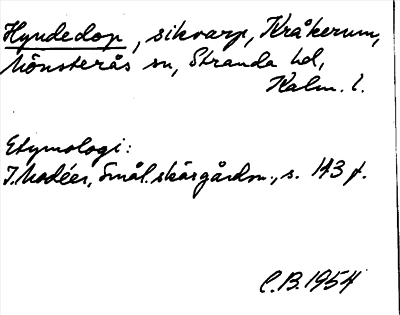 Hyndedop, sikvarp, Kråkerum,
Mönsterås sn, Stranda hd,
Kalm. l.
Etymologi:
I. Modéer, Smål. skärgårdsn., s. 143 f.
C.B. 1954